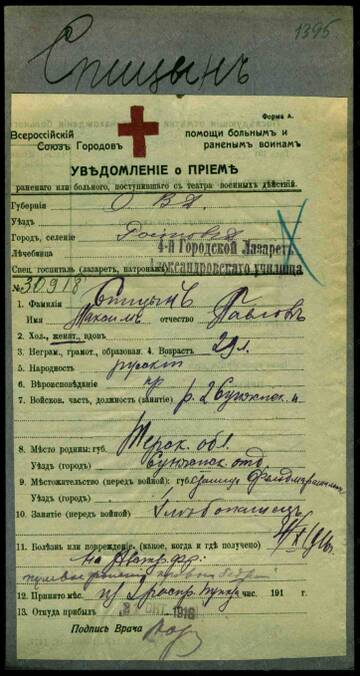 1395
Спицынъ
Форма А.
Всероссійскій помощи больнымъ и
Союзъ Городовъ раненымъ воинамъ
УВѢДОМЛЕНІЕ о ПРІЕМѢ
раненаго или больного, поступившаго съ театра военныхъ дѣйствій.
Губернія О В Д
Уѣздъ
Городъ, селеніе Ростовъ Д
Лѣчебница 4-й Городской Лазаретъ
Спец. госпиталь (лазаретъ, патронажъ) Александровскаго училища
№ 30918
1. Фамилія Спицынъ
Имя Максимъ отчество Павловъ
2. Хол., женат., вдовъ
3. Неграм., грамот., образован. 4. Возрастъ 29 л.
5. Народность русскій
6. Вѣроисповѣданіе пр
7. Войсков. часть, должность (занятіе) р. 2 Сунженск. п.
8. Мѣсто родины: губ. Терск. обл.
Уѣздъ (городъ) Сунженск. отд
9. Мѣстожительство (передъ войной): губ. Станица Фельдмаршальская
Уѣздъ (городъ)
10. Занятіе (передъ войной) Хлѣбопашецъ
11. Болѣзнь или поврежденіе. (какое, когда и гдѣ получено)
на фр.
пулевое раненіе
12. Принято мѣс. из распр. пункта чис. 191 г.
13. Откуда прибылъ 2 ОКТ 1916
Подпись Врача